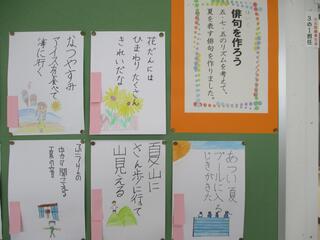 俳句を作ろう
五・七・五のリズムを考えて、
夏を表す俳句を作りました。
花だんには
ひまわりたくさん
きれいだな
なつやすみ
アイスを食べて
海に行く
あつい夏
プールに入る
じきがきた
夏山に
さん歩に行って
山見える